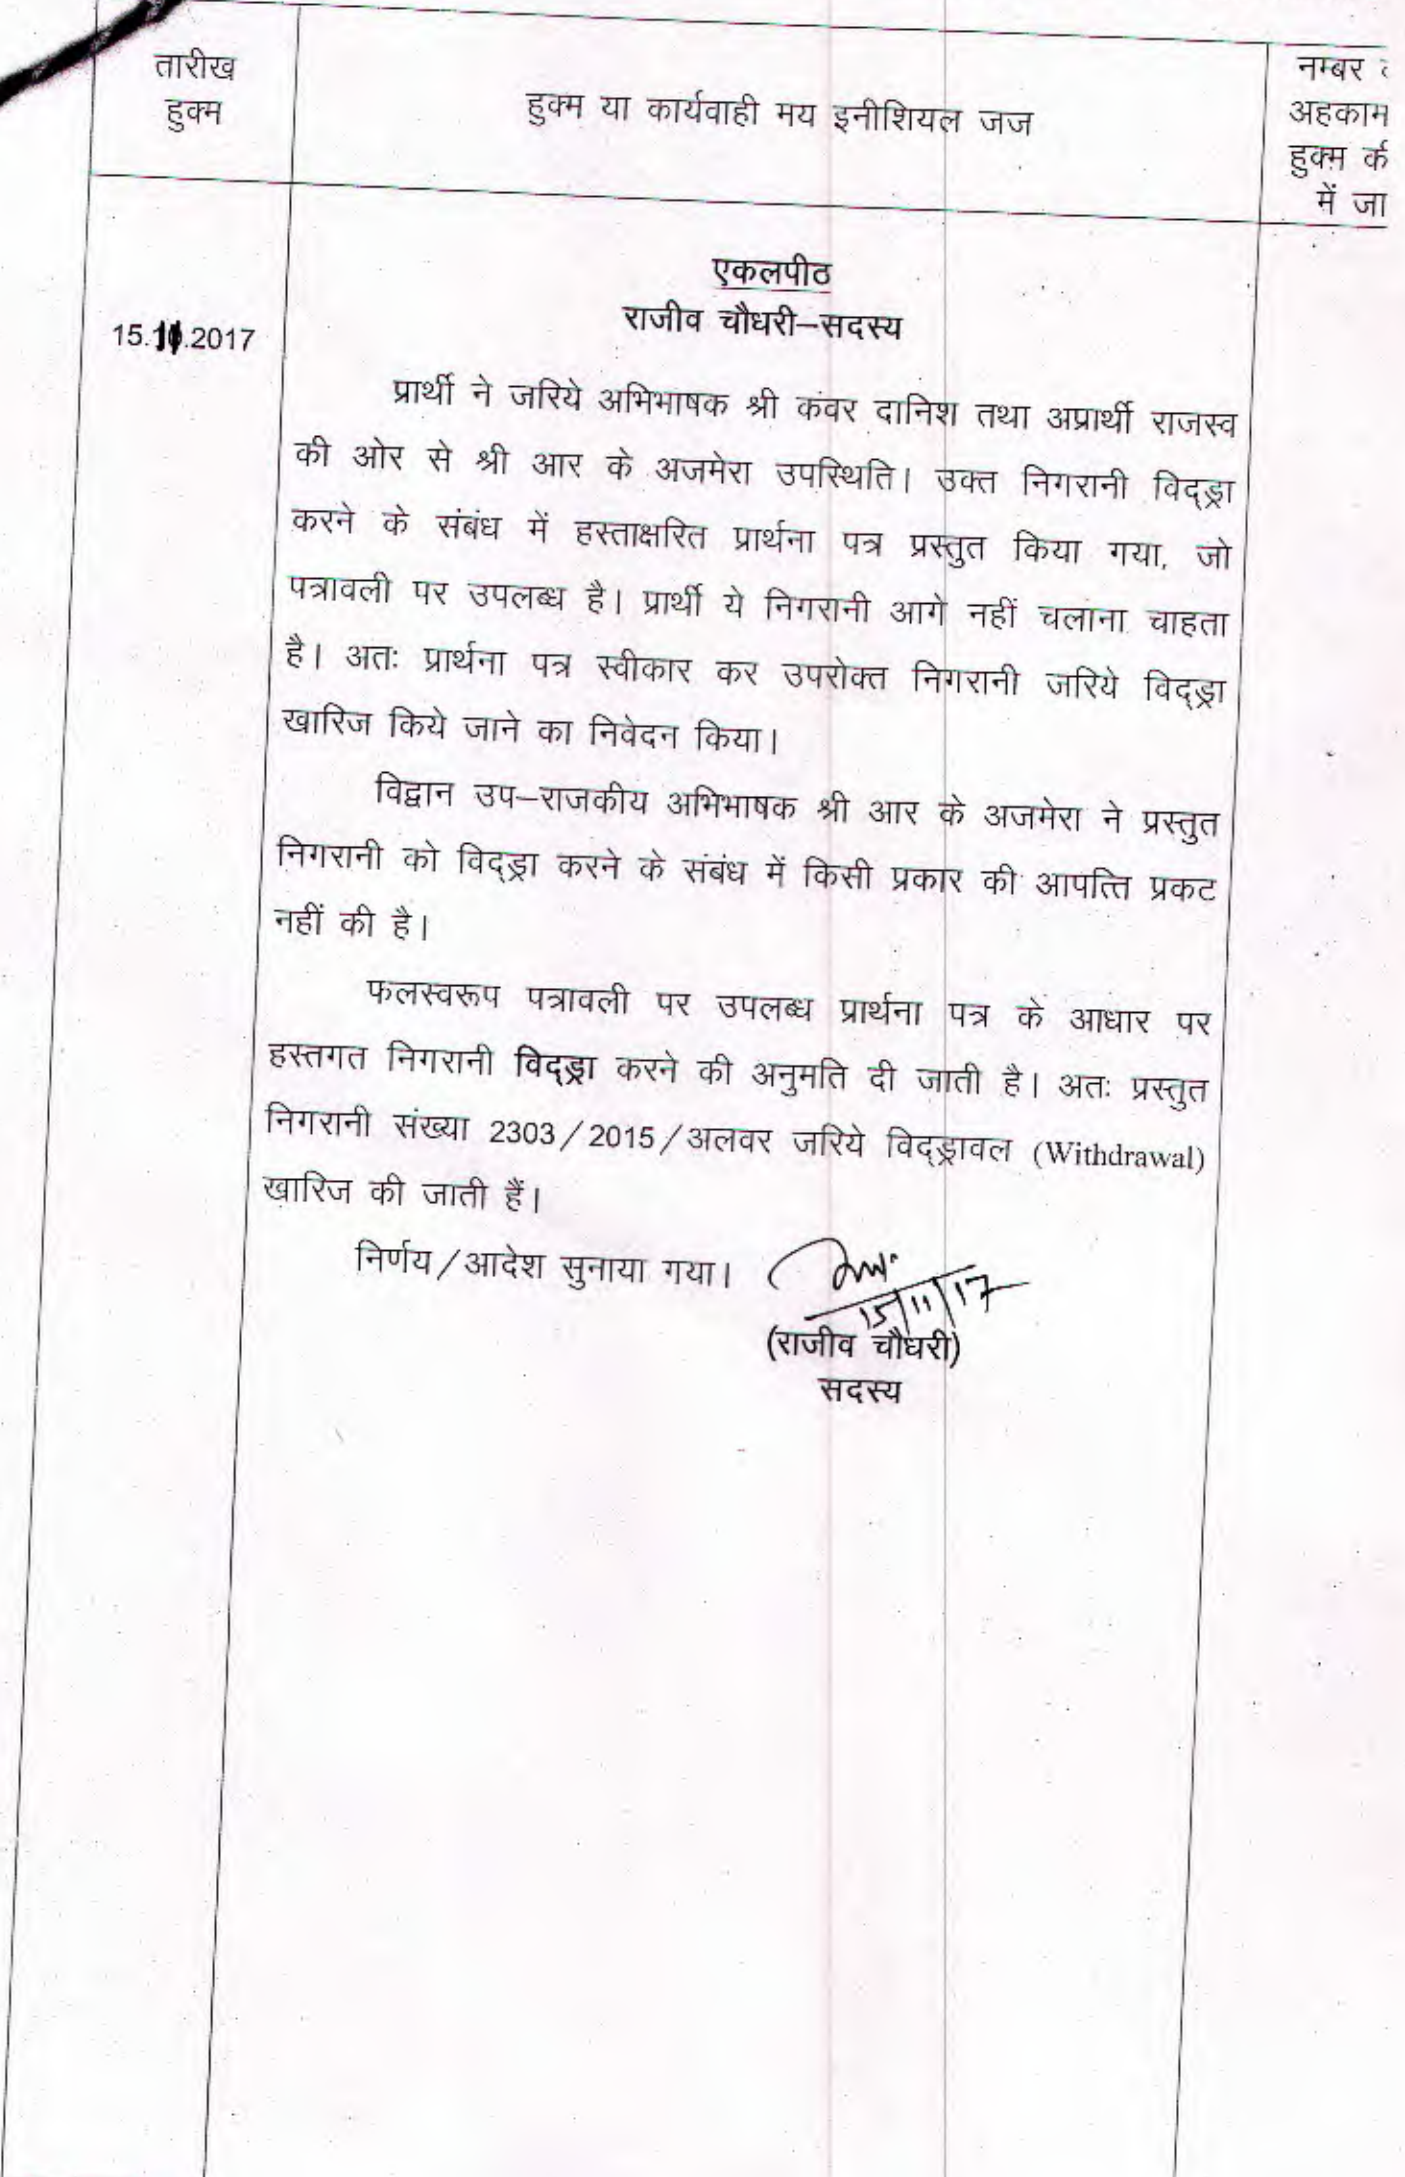 तारीख
हुक्म
हुक्म या कार्यवाही मय इनीशियल जज
नम्बर
अहकाम
हुक्म
में जा
एकलपीठ
राजीव चौधरी–सदस्य
15.11.2017
प्रार्थी ने जरिये अभिभाषक श्री कंवर दानिश तथा अप्रार्थी राजस्व
की ओर से श्री आर के अजमेरा उपस्थिति। उक्त निगरानी विद्ड्रा
करने के संबंध में हस्ताक्षरित प्रार्थना पत्र प्रस्तुत किया गया, जो
पत्रावली पर उपलब्ध है। प्रार्थी ये निगरानी आगे नहीं चलाना चाहता
है। अतः प्रार्थना पत्र स्वीकार कर उपरोक्त निगरानी जरिये विद्ड्रा
खारिज किये जाने का निवेदन किया।
विद्वान उप–राजकीय अभिभाषक श्री आर के अजमेरा ने प्रस्तुत
निगरानी को विद्ड्रा करने के संबंध में किसी प्रकार की आपत्ति प्रकट
नहीं की है।
फलस्वरूप पत्रावली पर उपलब्ध प्रार्थना पत्र के आधार पर
हस्तगत निगरानी विद्ड्रा करने की अनुमति दी जाती है। अतः प्रस्तुत
निगरानी संख्या 2303/2015/अलवर जरिये विद्ड्रावल (Withdrawal)
खारिज की जाती हैं।
निर्णय/आदेश सुनाया गया।
15/11/17
(राजीव चौधरी)
सदस्य